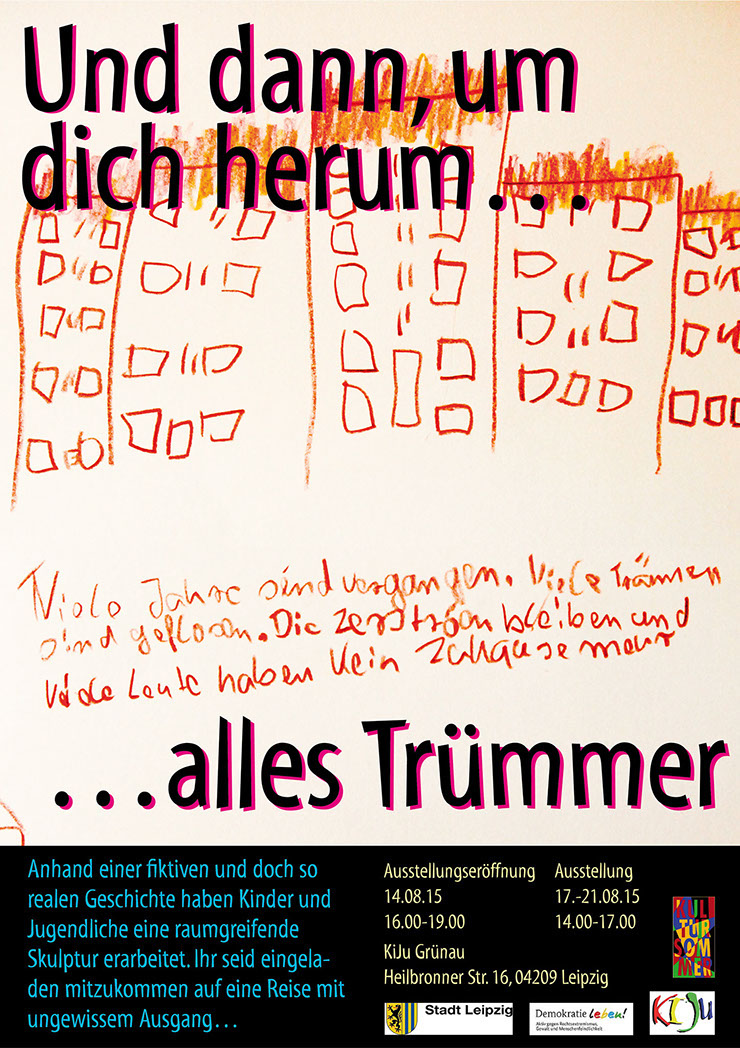 Und dann, um
dich herum...
Violo Jahre sind vergangen. Viele Tränen
sind geflosen. Die zerströen bleiben und
Viele Leute haben Kein Zuhause mehr
...alles Trümmer
Anhand einer fiktiven und doch so
realen Geschichte haben Kinder und
Jugendliche eine raumgreifende
Skulptur erarbeitet. Ihr seid eingela-
den mitzukommen auf eine Reise mit
ungewissem Ausgang...
Ausstellungseröffnung
14.08.15
16.00-19.00
Ausstellung
17.-21.08.15
14.00-17.00
KiJu Grünau
Heilbronner Str. 16, 04209 Leipzig
KUL
TUR
SOM
MER
Stadt Leipzig
Demokratie leben!
Aktiv gegen Rechtsextremismus,
Gewalt und Menschenfeindlichkeit
KiJu